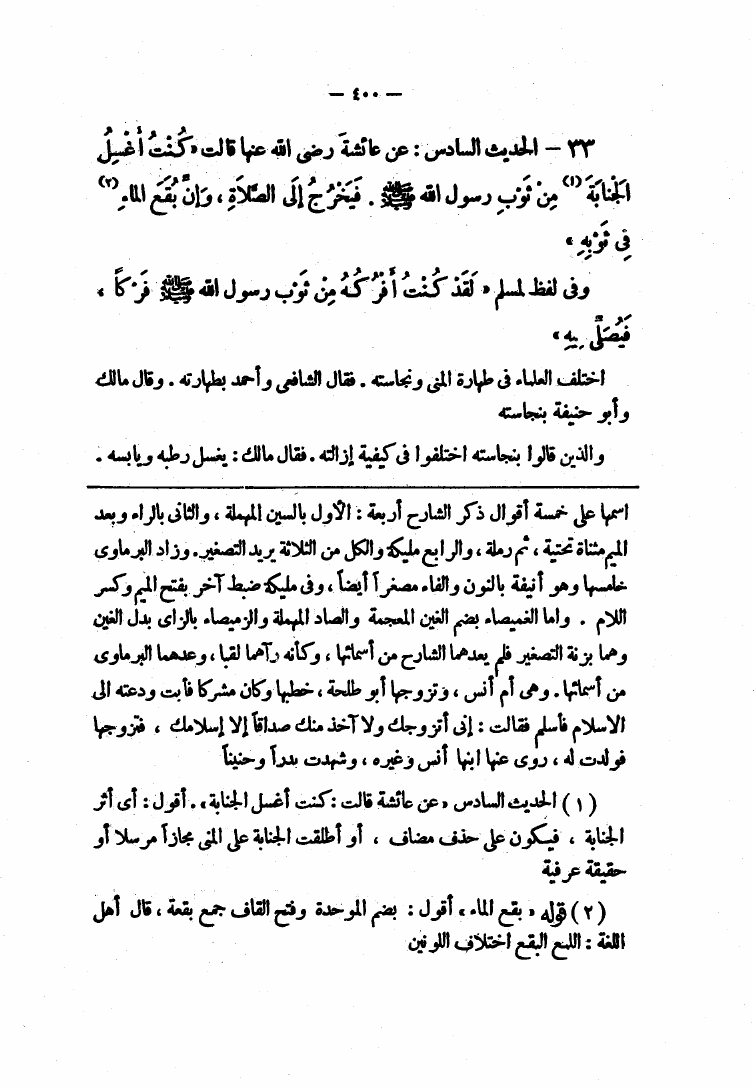 — ٤٠٠ —
٣٣ — الحديث السادس : عن عائشةَ رضى الله عنها قالت « كُنْتُ أَغْسِلُ
الْجَنَابَةَ (١) مِنْ ثَوْبِ رسول الله ﷺ . فَيَخْرُجُ إلَى الصَّلَاةِ ، وَإنَّ بُقَعَ الماءِ (٢)
فِى ثَوْبِهِ »
وفى لفظ لمسلم « لَقَدْ كُنْتُ أَفْرُكُهُ مِنْ ثَوْبِ رسول الله ﷺ فَرْكاً ،
فَيُصَلِّى فِيهِ »
اختلف العلماء فى طهارة المنى ونجاسته . فقال الشافعى وأحمد بطهارته . وقال مالك
وأبو حنيفة بنجاسته
والذين قالوا بنجاسته اختلفوا فى كيفية إزالته . فقال مالك : يغسل رطبه ويابسه .
اسمها على خمسة أقوال ذكر الشارح أربعة : الأول بالسين المهملة ، والثانى بالراء وبعد
الميم مثناة تحتية ، ثم رملة ، والرابع مليكة والكل من الثلاثة يريد التصغير. وزاد البرماوى
خامسها وهو أنيفة بالنون والفاء مصغراً أيضاً ، وفى مليكة ضبط آخر بفتح الميم وكسر
اللام . واما الغميصاء بضم الغين المعجمة والصاد المهملة والزميصاء بالزاى بدل الغين
وهما بزنة التصغير فلم يعدهما الشارح من أسمائها ، وكأنه رآهما لقبا ، وعدهما البرماوى
من أسمائها . وهى أم أنس ، وتزوجها أبو طلحة ، خطبها وكان مشركا فأبت ودعته الى
الاسلام فأسلم فقالت : إنى أتزوجك ولا آخذ منك صداقاً إلا إسلامك ، فتزوجها
فولدت له ، روى عنها ابنها أنس وغيره ، وشهدت بدراً وحنيناً
(١) الحديث السادس « عن عائشة قالت : كنت أغسل الجنابة » . أقول : أى أثر
الجنابة ، فيكون على حذف مضاف ، أو أطلقت الجنابة على المنى مجازاً مرسلا أو
حقيقة عرفية
(٢) قوله « بقع الماء » أقول : بضم الموحدة وفتح القاف جمع بقعة ، قال أهل
اللغة : اللمع البقع اختلاف اللونين